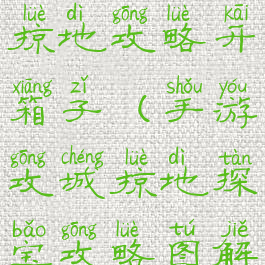 lüè dì gōng lüè kāi
掠地攻略开
xiāng zǐ shǒu yóu
箱子（手游
gōng chéng lüè dì tàn
攻城掠地探
bǎo gōng lüè tú jiě
宝攻略图解